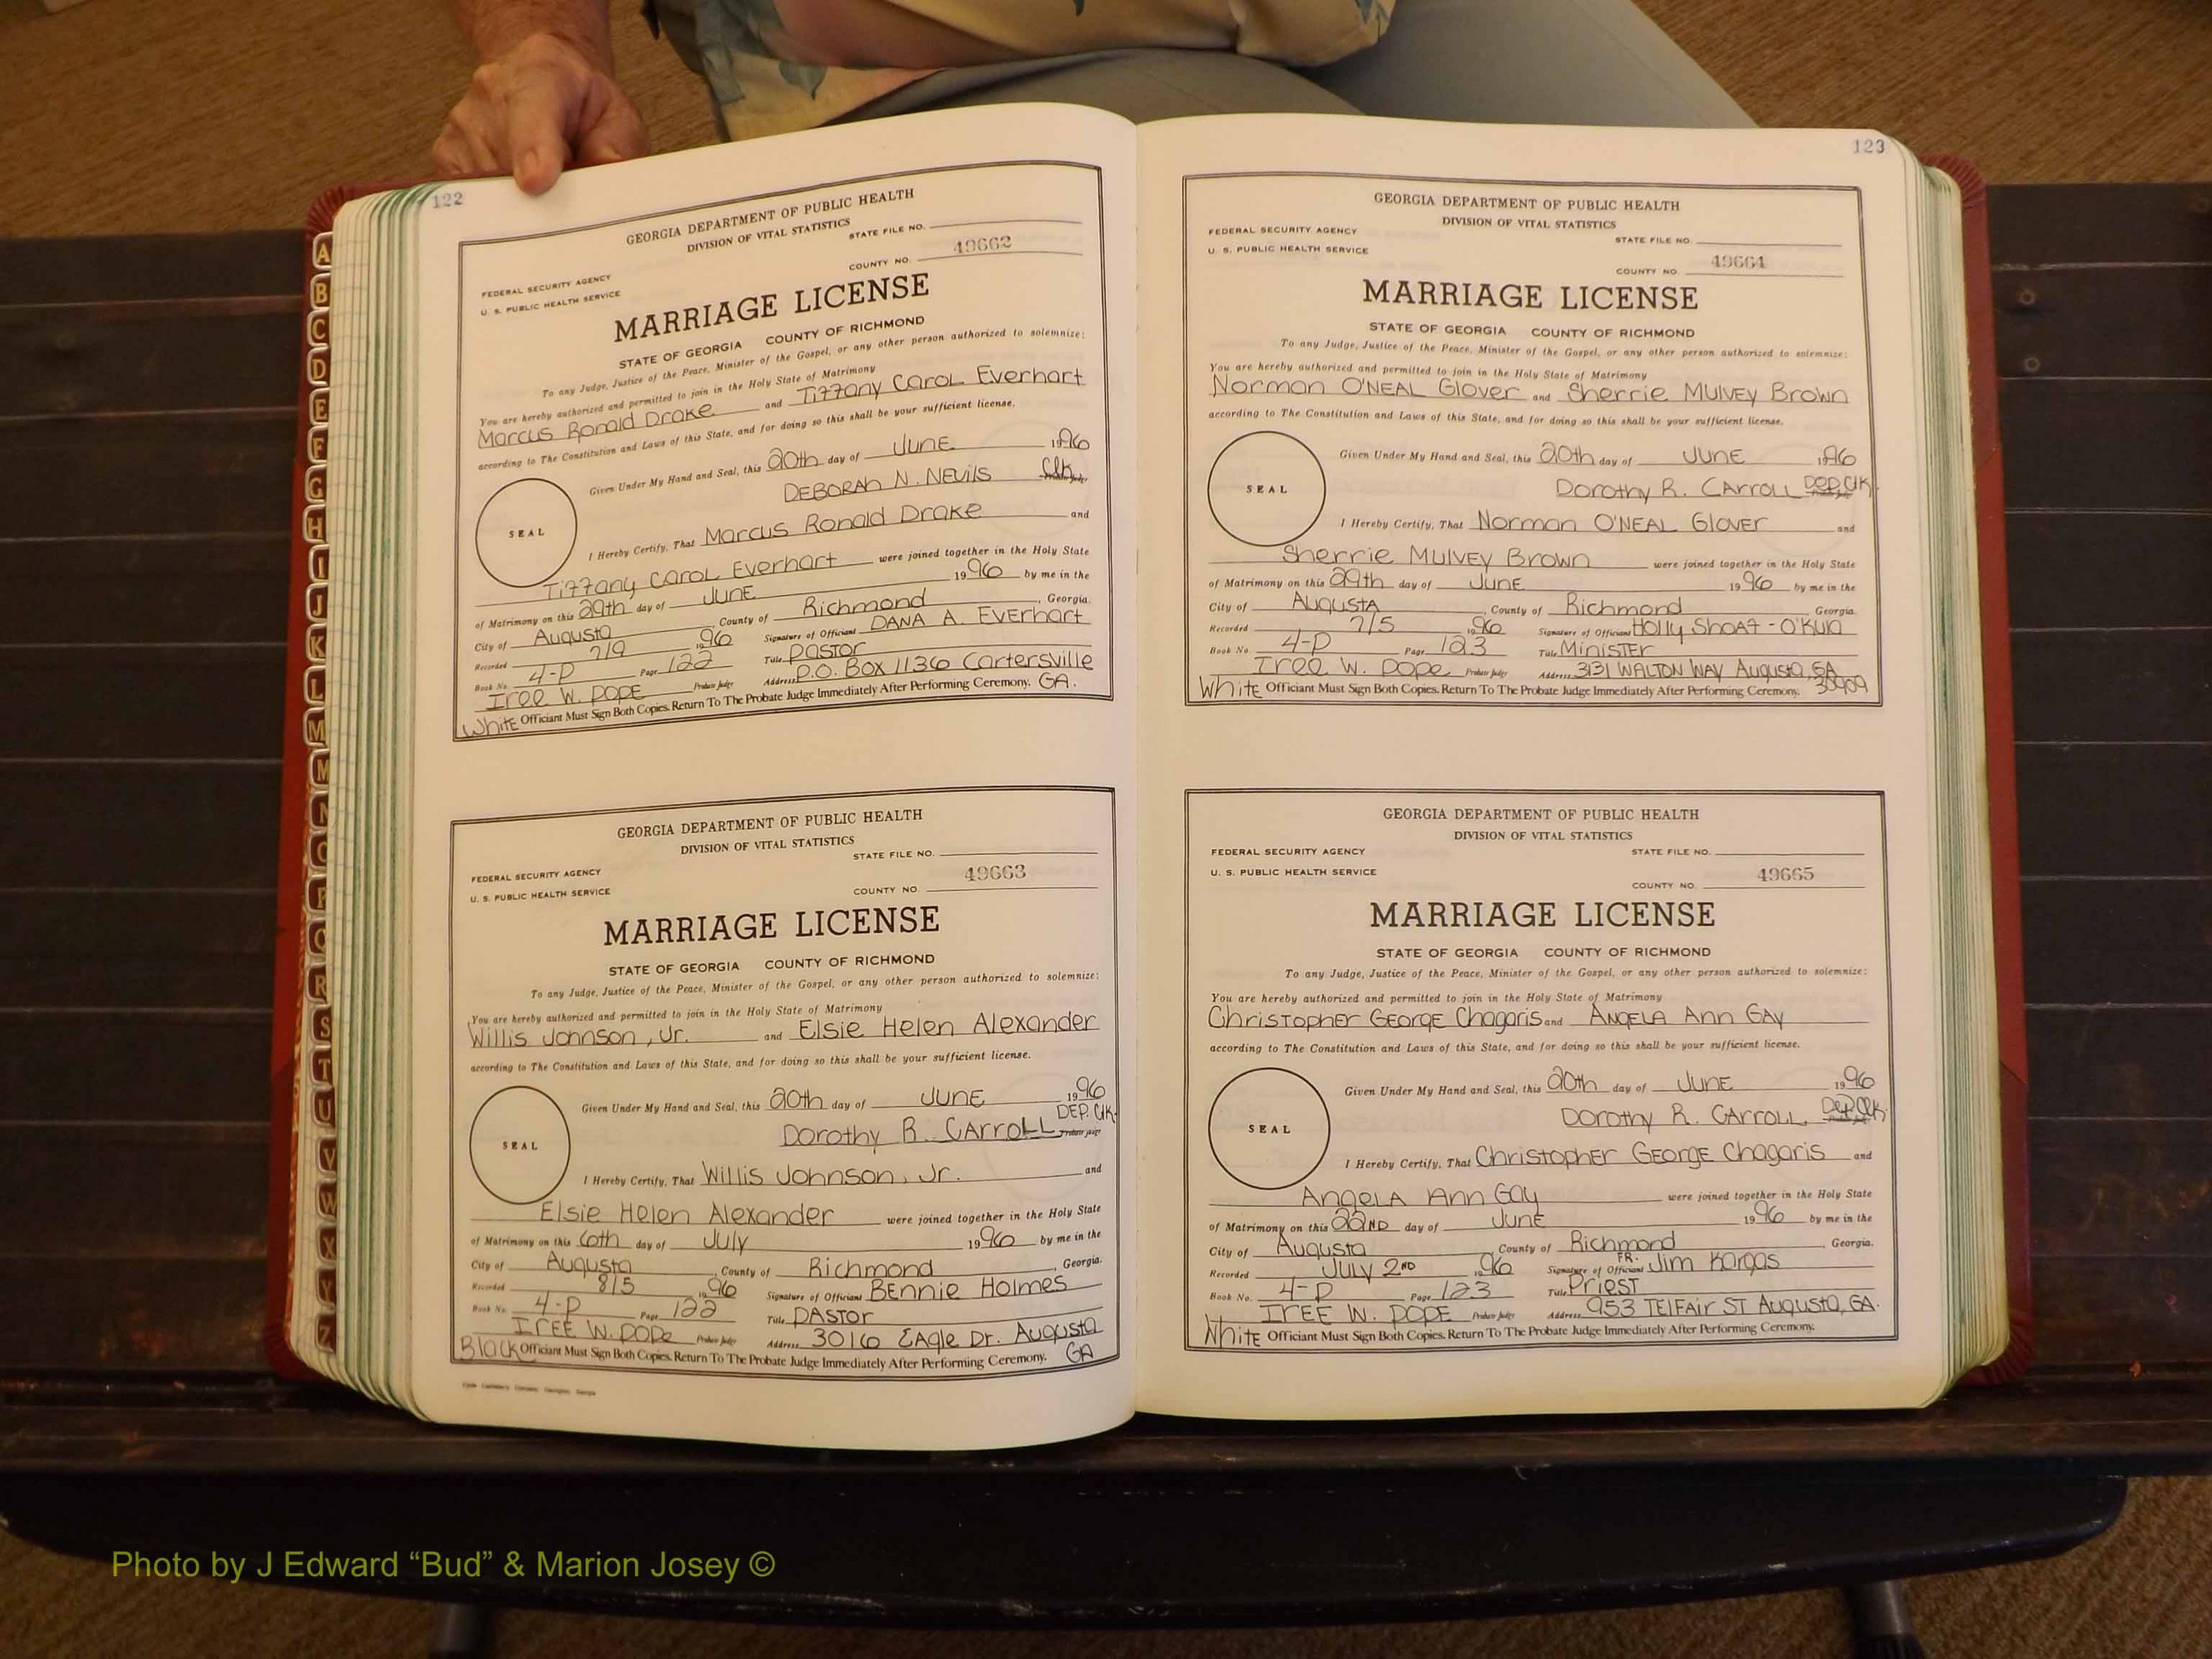 122
GEORGIA DEPARTMENT OF PUBLIC HEALTH
DIVISION OF VITAL STATISTICS
STATE FILE NO.
FEDERAL SECURITY AGENCY
U. S. PUBLIC HEALTH SERVICE
COUNTY NO. 49662
MARRIAGE LICENSE
STATE OF GEORGIA COUNTY OF RICHMOND
To any Judge, Justice of the Peace, Minister of the Gospel, or any other person authorized to solemnize:
You are hereby authorized and permitted to join in the Holy State of Matrimony
Marcus Ronald Drake and Tiffany Carol Everhart
according to The Constitution and Laws of this State, and for doing so this shall be your sufficient license.
Given Under My Hand and Seal, this 20th day of JUNE 1996
DEBORAH N. NEVILS Clk.
SEAL
I Hereby Certify, That Marcus Ronald Drake and
Tiffany Carol Everhart were joined together in the Holy State
of Matrimony on this 29th day of JUNE 1996 by me in the
City of Augusta, County of Richmond, Georgia.
Recorded 7/9 1996 Signature of Officiant DANA A. EVERHART
Book No. 4-P Page 122 Title PASTOR
IREE W. POPE Probate Judge Address P.O. Box 1136 Cartersville
White Officiant Must Sign Both Copies. Return To The Probate Judge Immediately After Performing Ceremony. GA.
GEORGIA DEPARTMENT OF PUBLIC HEALTH
DIVISION OF VITAL STATISTICS
STATE FILE NO.
FEDERAL SECURITY AGENCY
U. S. PUBLIC HEALTH SERVICE
COUNTY NO. 49663
MARRIAGE LICENSE
STATE OF GEORGIA COUNTY OF RICHMOND
To any Judge, Justice of the Peace, Minister of the Gospel, or any other person authorized to solemnize:
You are hereby authorized and permitted to join in the Holy State of Matrimony
Willis Johnson, Jr. and Elsie Helen Alexander
according to The Constitution and Laws of this State, and for doing so this shall be your sufficient license.
Given Under My Hand and Seal, this 20th day of JUNE 1996
DEP. Clk.
Dorothy R. CARROLL Probate Judge
SEAL
I Hereby Certify, That Willis Johnson, Jr. and
Elsie Helen Alexander were joined together in the Holy State
of Matrimony on this 6th day of July 1996 by me in the
City of Augusta, County of Richmond, Georgia.
Recorded 8/5 1996 Signature of Officiant BENNIE HOLMES
Book No. 4-P Page 122 Title PASTOR
IREE W. POPE Probate Judge Address 3016 EAGLE Dr. Augusta
Black Officiant Must Sign Both Copies. Return To The Probate Judge Immediately After Performing Ceremony. GA
123
GEORGIA DEPARTMENT OF PUBLIC HEALTH
DIVISION OF VITAL STATISTICS
FEDERAL SECURITY AGENCY
STATE FILE NO.
U. S. PUBLIC HEALTH SERVICE
COUNTY NO. 49664
MARRIAGE LICENSE
STATE OF GEORGIA COUNTY OF RICHMOND
To any Judge, Justice of the Peace, Minister of the Gospel, or any other person authorized to solemnize:
You are hereby authorized and permitted to join in the Holy State of Matrimony
Norman O'NEAL Glover and Sherrie MULVEY Brown
according to The Constitution and Laws of this State, and for doing so this shall be your sufficient license.
Given Under My Hand and Seal, this 20th day of JUNE 1996
Dorothy R. CARROLL Dep. Clk.
SEAL
I Hereby Certify, That Norman O'NEAL GLOVER and
Sherrie MULVEY Brown were joined together in the Holy State
of Matrimony on this 29th day of JUNE 1996 by me in the
City of AUGUSTA, County of Richmond, Georgia.
Recorded 7/5 1996 Signature of Officiant HOLLY SHOAF-O'KULA
Book No. 4-P Page 123 Title MINISTER
IREE W. POPE Probate Judge Address 3131 WALTON WAY Augusta, GA
White Officiant Must Sign Both Copies. Return To The Probate Judge Immediately After Performing Ceremony. 30909
GEORGIA DEPARTMENT OF PUBLIC HEALTH
DIVISION OF VITAL STATISTICS
FEDERAL SECURITY AGENCY
STATE FILE NO.
U. S. PUBLIC HEALTH SERVICE
COUNTY NO. 49665
MARRIAGE LICENSE
STATE OF GEORGIA COUNTY OF RICHMOND
To any Judge, Justice of the Peace, Minister of the Gospel, or any other person authorized to solemnize:
You are hereby authorized and permitted to join in the Holy State of Matrimony
Christopher GEORGE Chagaris and ANGELA Ann GAY
according to The Constitution and Laws of this State, and for doing so this shall be your sufficient license.
Given Under My Hand and Seal, this 20th day of JUNE 1996
Dorothy R. CARROLL Dep. Clk.
SEAL
I Hereby Certify, That Christopher GEORGE Chagaris and
ANGELA Ann GAY were joined together in the Holy State
of Matrimony on this 22ND day of JUNE 1996 by me in the
City of Augusta, County of Richmond, Georgia.
Recorded JULY 2ND 1996 Signature of Officiant FR. Jim Kargas
Book No. 4-P Page 123 Title PRIEST
IREE W. POPE Probate Judge Address 953 TELFAIR ST Augusta, GA.
White Officiant Must Sign Both Copies. Return To The Probate Judge Immediately After Performing Ceremony.
A
B
C
D
E
F
G
H
I
J
K
L
M
M
N
O
P
Q
R
S
T
U
V
W
X
Y
Z
Photo by J Edward “Bud” & Marion Josey ©